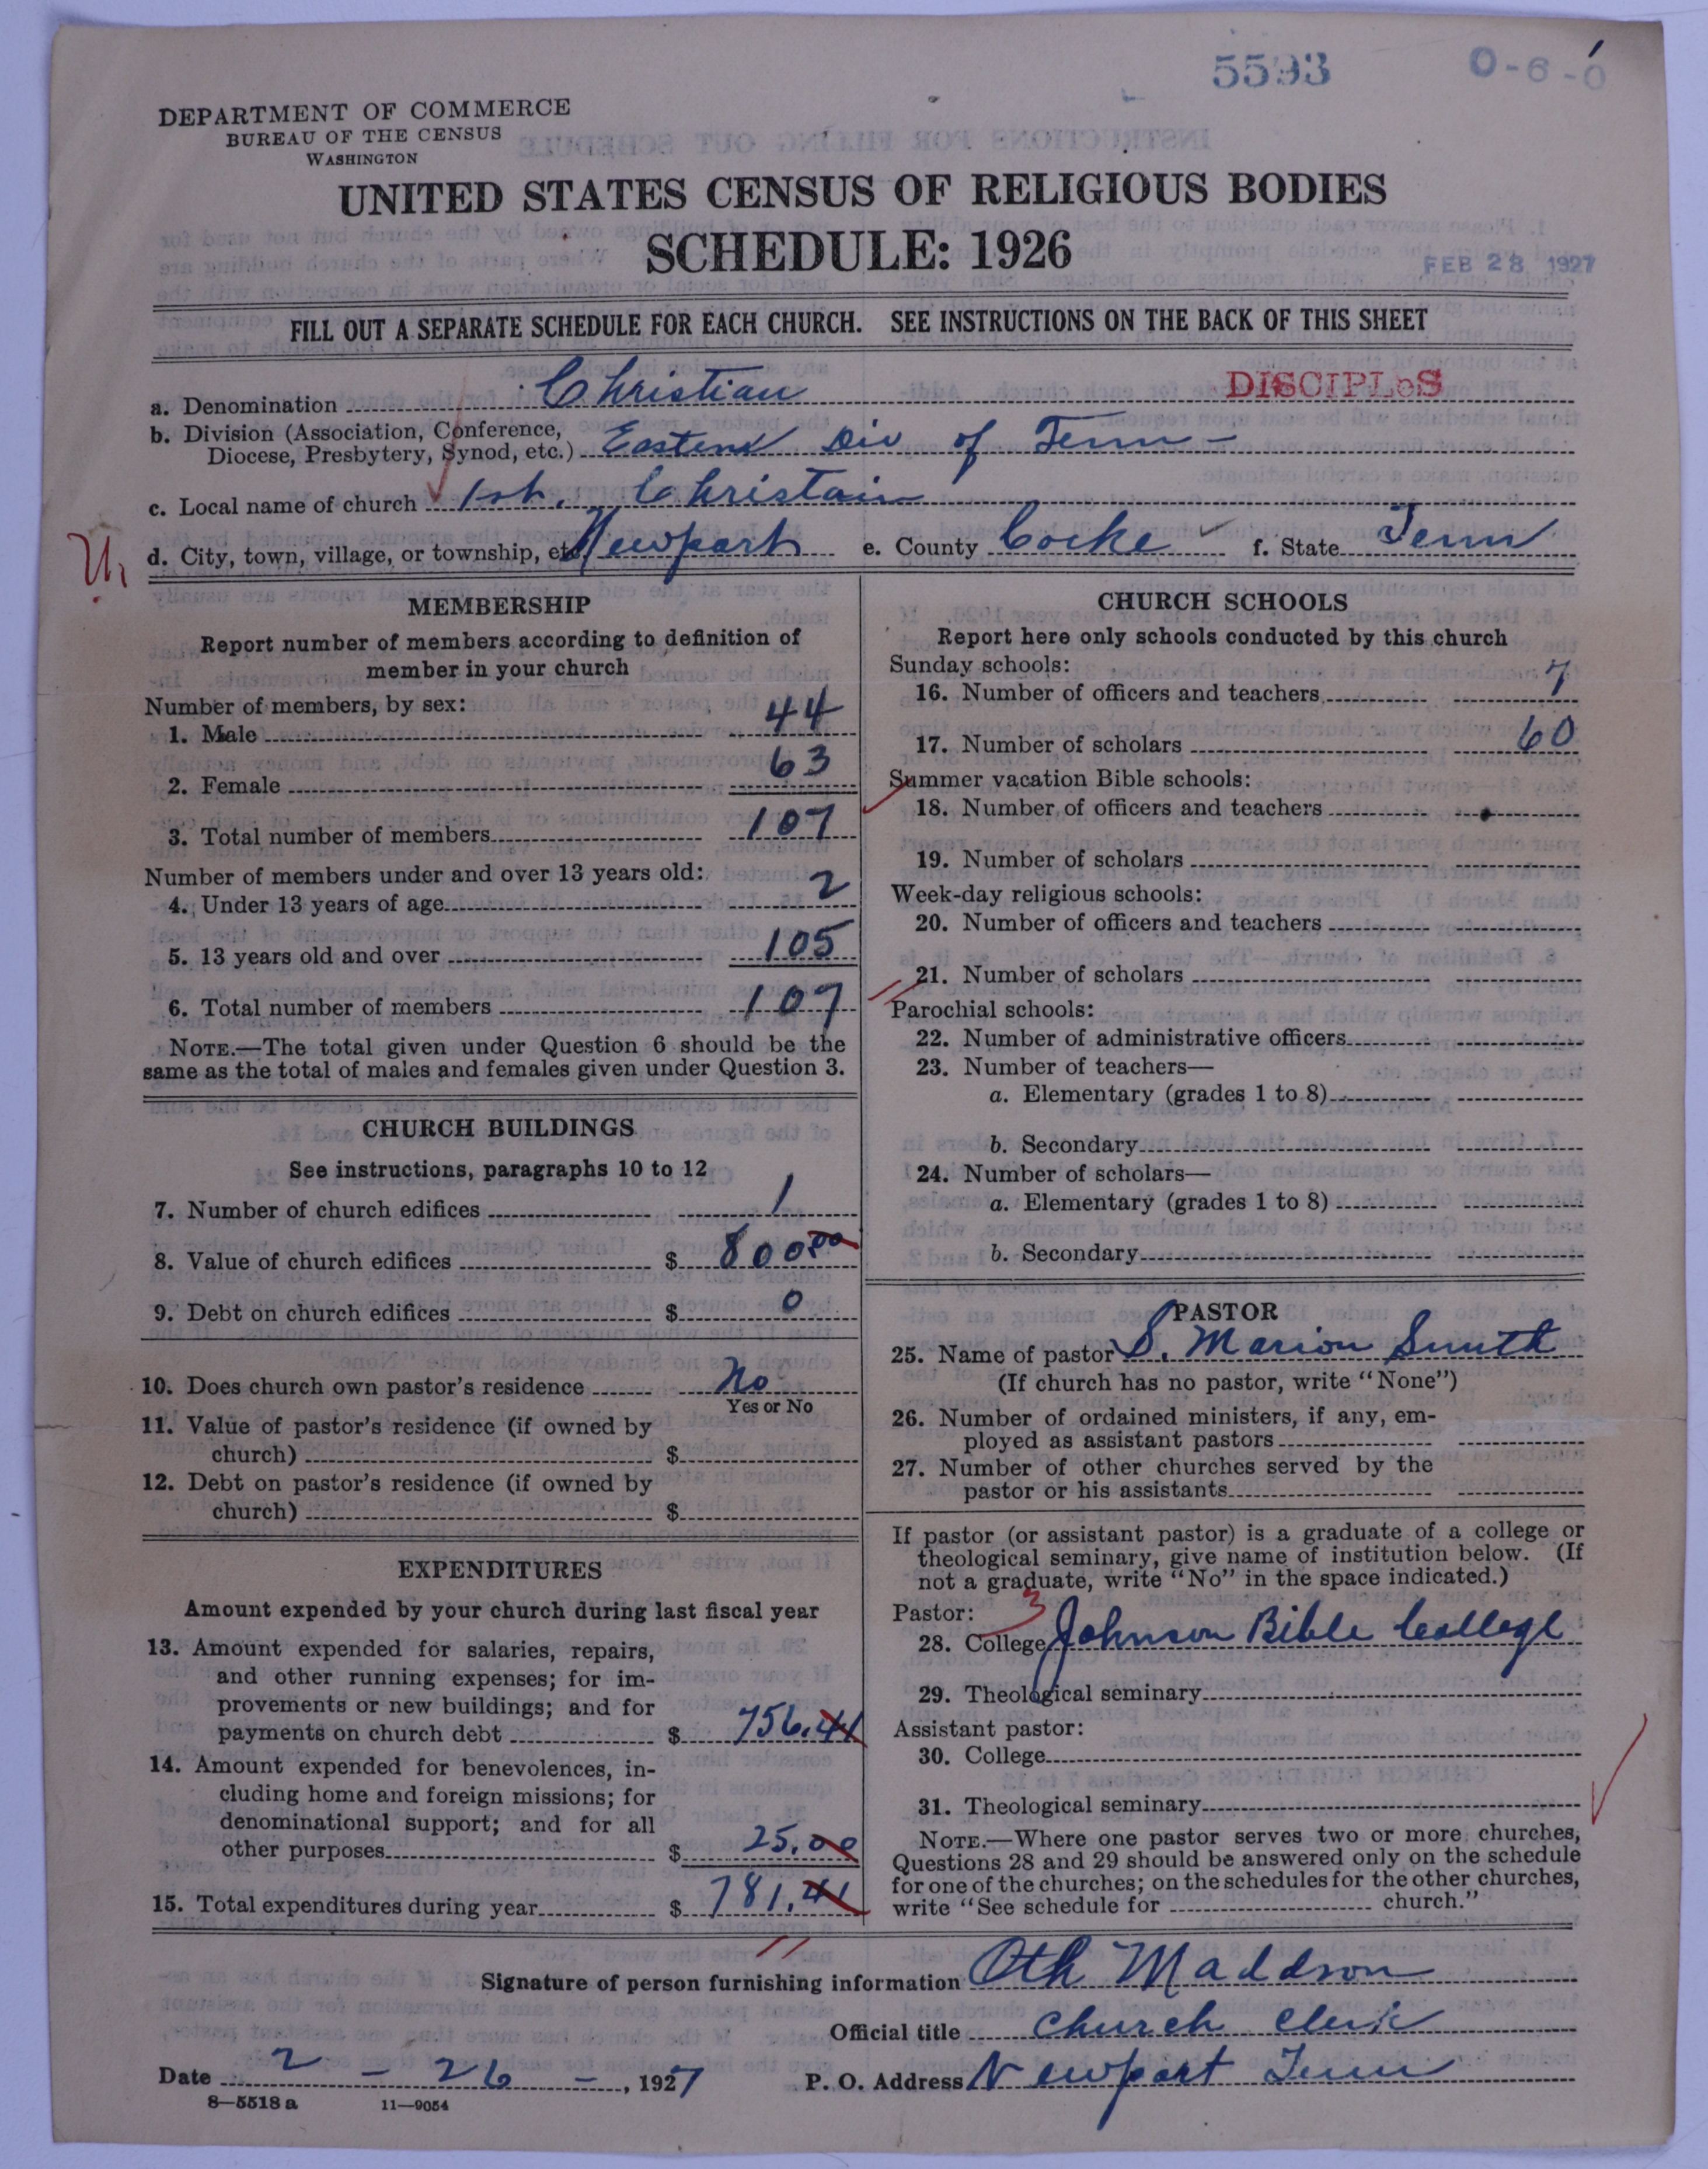 5593
0-6-0
DEPARTMENT OF COMMERCE
BUREAU OF THE CENSUS
WASHINGTON
UNITED STATES CENSUS OF RELIGIOUS BODIES
SCHEDULE: 1926
FEB 28 1927
FILL OUT A SEPARATE SCHEDULE FOR EACH CHURCH. SEE INSTRUCTIONS ON THE BACK OF THIS SHEET
a. Denomination Christian DISCIPLeS
b. Division (Association, Conference,
Diocese, Presbytery, Synod, etc.) Eastern Div of Tenn -
c. Local name of church 1st. Christain
d. City, town, village, or township, etc. Newport e. County Cocke f. State Tenn
MEMBERSHIP
Report number of members according to definition of
member in your church
Number of members, by sex:
1. Male 44
2. Female 63
3. Total number of members 107
Number of members under and over 13 years old:
4. Under 13 years of age 2
5. 13 years old and over 105
6. Total number of members 107
NOTE.—The total given under Question 6 should be the
same as the total of males and females given under Question 3.
CHURCH BUILDINGS
See instructions, paragraphs 10 to 12
7. Number of church edifices 1
8. Value of church edifices $ 800 00
9. Debt on church edifices $ 0
10. Does church own pastor's residence No
Yes or No
11. Value of pastor's residence (if owned by
church) $
12. Debt on pastor's residence (if owned by
church) $
EXPENDITURES
Amount expended by your church during last fiscal year
13. Amount expended for salaries, repairs,
and other running expenses; for im-
provements or new buildings; and for
payments on church debt $ 756.41
14. Amount expended for benevolences, in-
cluding home and foreign missions; for
denominational support; and for all
other purposes $ 25.00
15. Total expenditures during year $ 781.41
CHURCH SCHOOLS
Report here only schools conducted by this church
Sunday schools:
16. Number of officers and teachers 7
17. Number of scholars 60
Summer vacation Bible schools:
18. Number of officers and teachers
19. Number of scholars
Week-day religious schools:
20. Number of officers and teachers
21. Number of scholars
Parochial schools:
22. Number of administrative officers
23. Number of teachers—
a. Elementary (grades 1 to 8)
b. Secondary
24. Number of scholars—
a. Elementary (grades 1 to 8)
b. Secondary
PASTOR
25. Name of pastor S. Marion Smith
(If church has no pastor, write "None")
26. Number of ordained ministers, if any, em-
ployed as assistant pastors
27. Number of other churches served by the
pastor or his assistants
If pastor (or assistant pastor) is a graduate of a college or
theological seminary, give name of institution below. (If
not a graduate, write "No" in the space indicated.)
Pastor: 3
28. College Johnson Bible College
29. Theological seminary
Assistant pastor:
30. College
31. Theological seminary
NOTE.—Where one pastor serves two or more churches,
Questions 28 and 29 should be answered only on the schedule
for one of the churches; on the schedules for the other churches,
write "See schedule for church."
Signature of person furnishing information Oth Maddron
Official title Church Clerk
Date 2 - 26 - , 1927 P. O. Address Newport Tenn
8—5518 a 11—9054